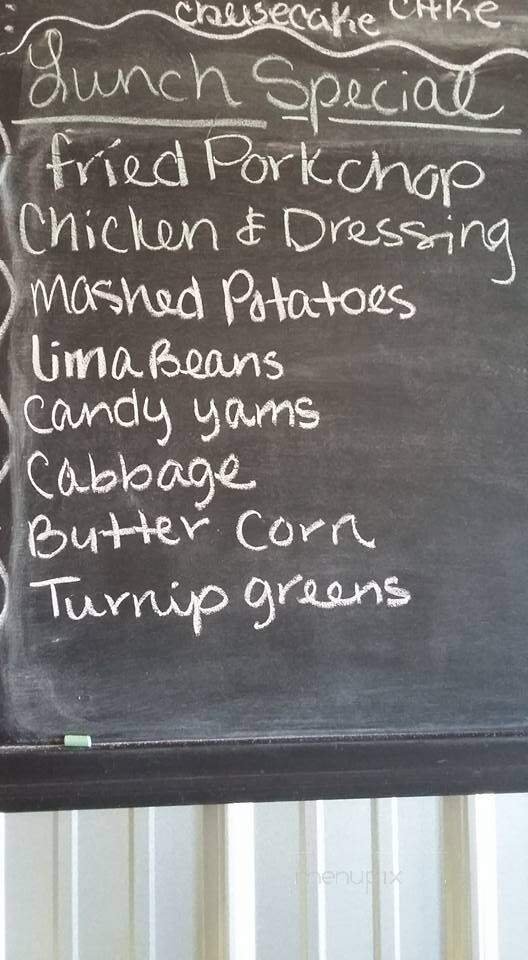 cheesecake CAKe
Lunch Special
fried Porkchop
Chicken & Dressing
mashed Potatoes
lima Beans
Candy yams
Cabbage
Butter Corn
Turnip greens
menupix